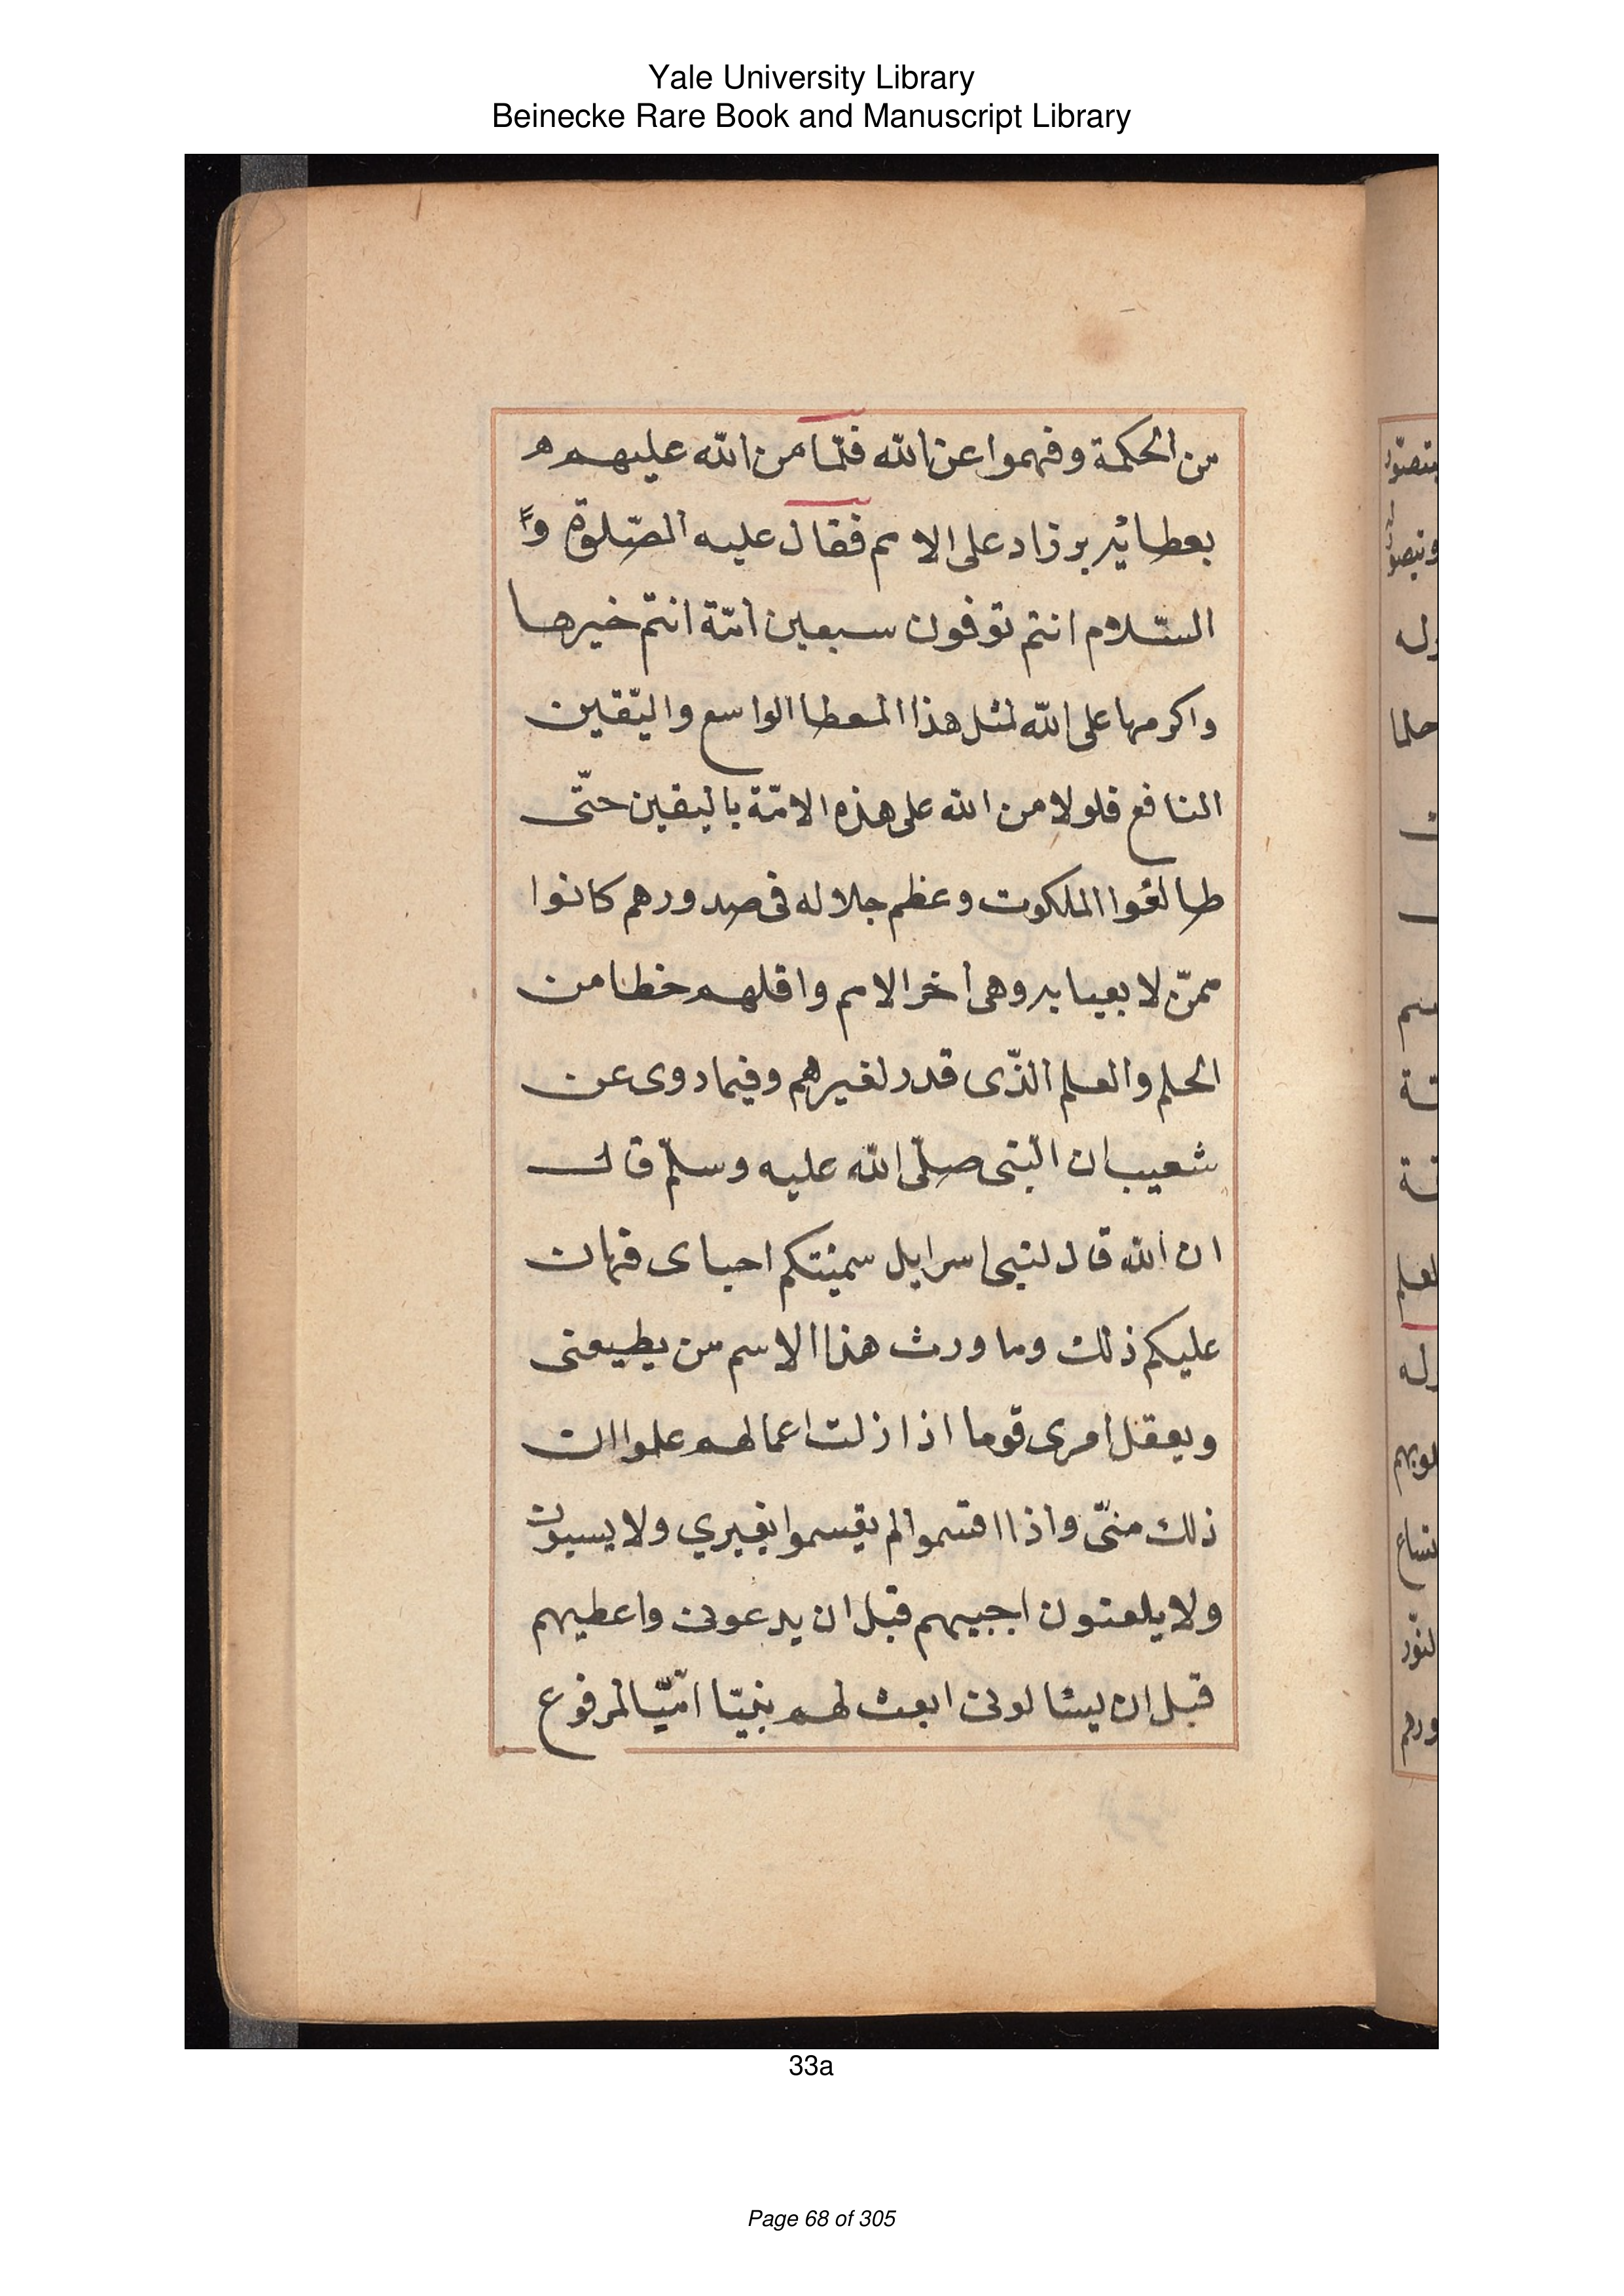 Yale University Library
Beinecke Rare Book and Manuscript Library
من الحكمة وفهموا عن الله فلمّا من الله عليهم
بعطائه برزاد على الامم فقال عليه الصّلوة و
السّلام انتم توفون سبعين امّة انتم خيرها
واكرمها على الله لمثل هذا العطا الواسع واليّقين
النافع فلولا من الله على هذه الامّة باليقين حتّى
طالعوا الملكوت وعظم جلاله فى صدورهم كانوا
ممّن لا يعبا به وهى أخر الامم واقلهم خطا من
الحلم والعلم الّذى قدر لغيرهم وفيما روى عن
شعيب ان النّبى صلّى الله عليه وسلّم قال
ان الله قال لبنى اسرايل سميتكم احباى فهان
عليكم ذلك وما ورث هذا الاسم من يطيعنى
ويعقل امرى قوما اذا زلت اعمالهم علوا ان
ذلك منّى واذا اقتموا لم يقسموا بغيري ولا يسبون
ولا يلعنون اجيبهم قبل ان يدعونى واعطيهم
قبل ان يسئالونى ابعث لهم نبيّا امّيّا لمرفوع
33a
Page 68 of 305